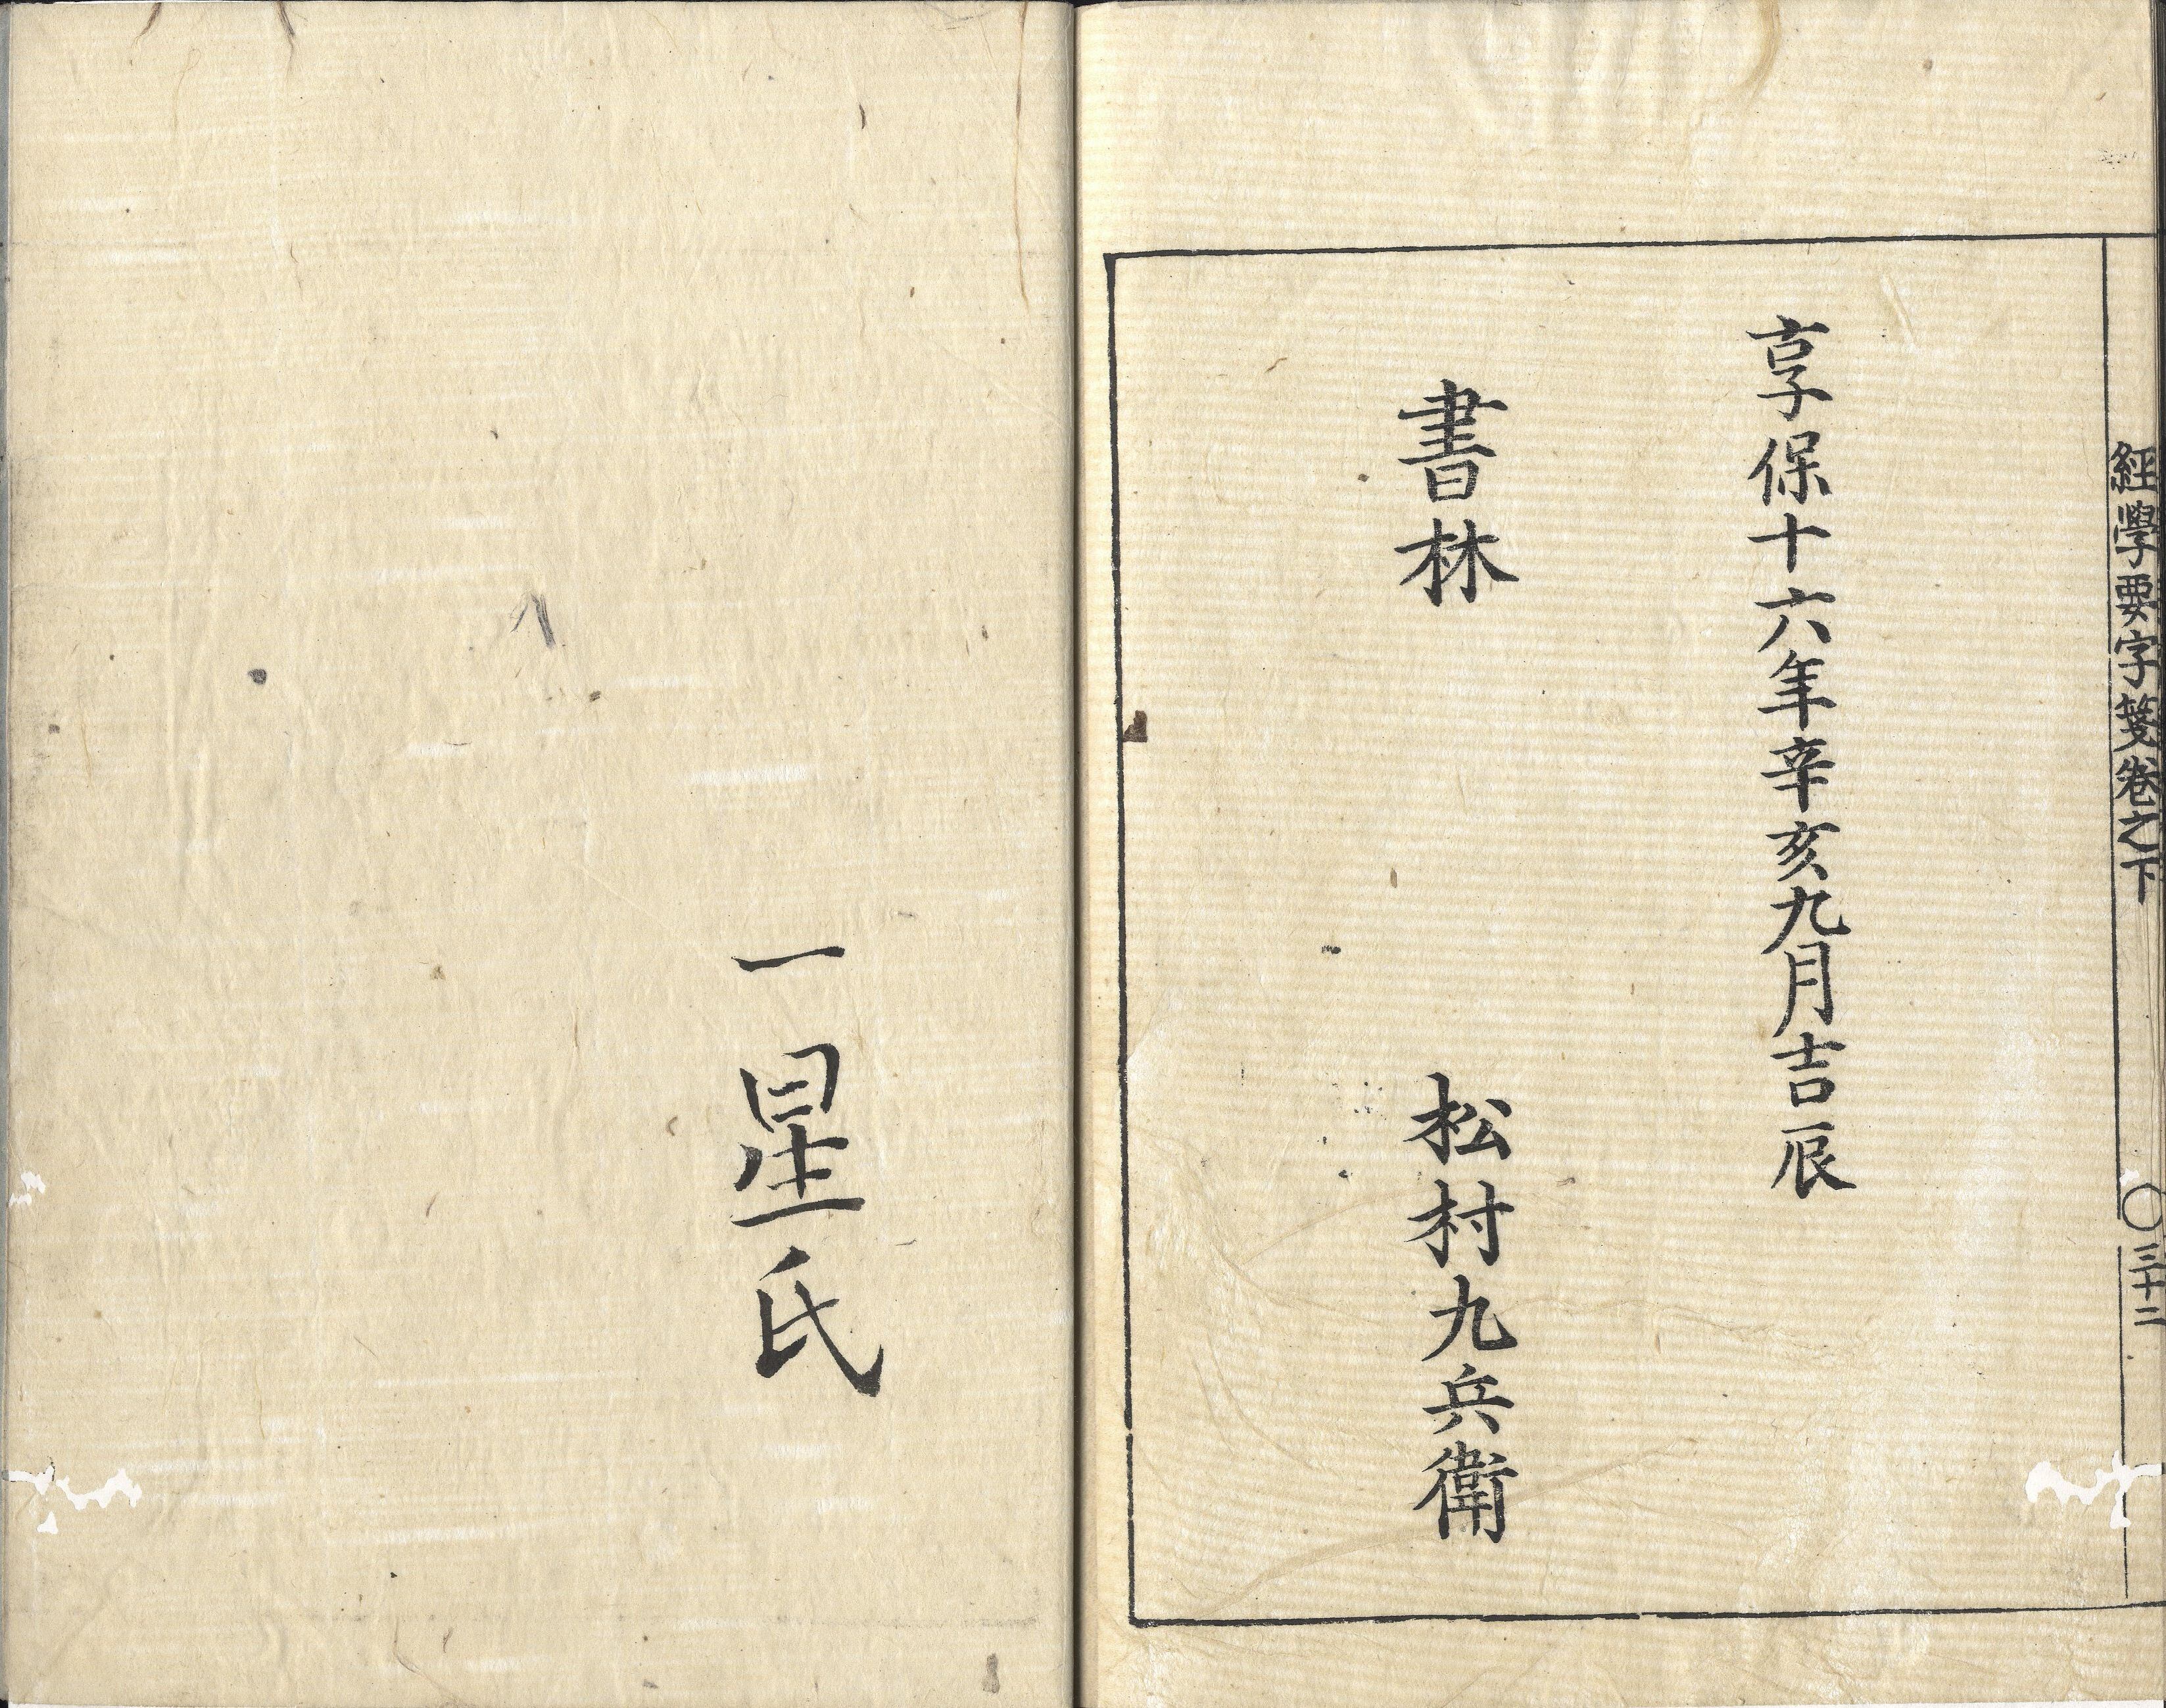 經學要字箋卷之下
〇三十二
享保十六年辛亥九月吉辰
書林
松村九兵衛
一星氏